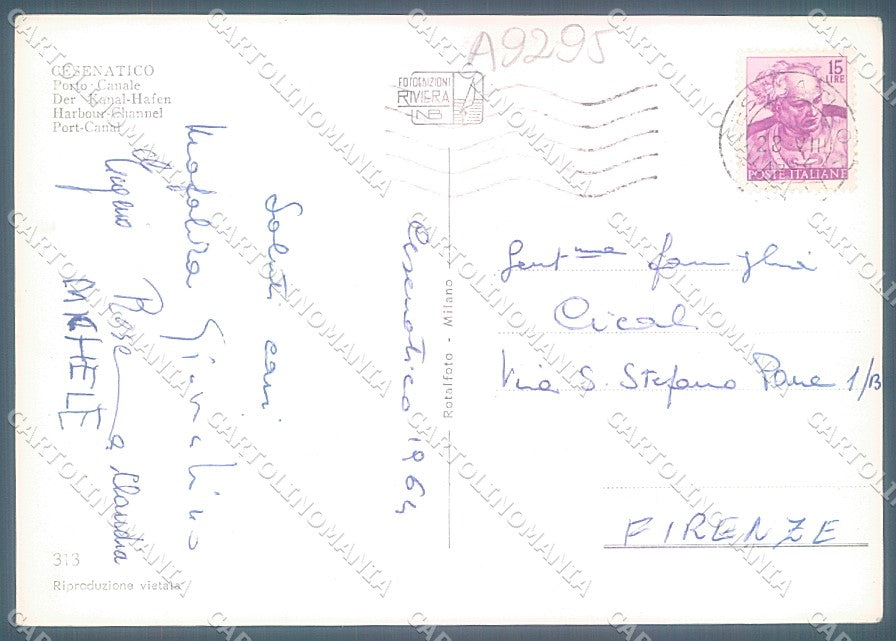 A9295
CESENATICO
Porto - Canale
Der Kanal-Hafen
Harbour-Channel
Port-Canal
FOTOEDIZIONI
RIVIERA
NB
15
LIRE
POSTE ITALIANE
28 VII
Cesenatico 1964
Saluti cari
Giovalino
Luigia Rosse e Claudia
MICHELE
Rotalfoto - Milano
Gent.ma famiglia
Cical
Via S. Stefano Pane 1/B
FIRENZE
313
Riproduzione vietata
CARTOLINOMANIA